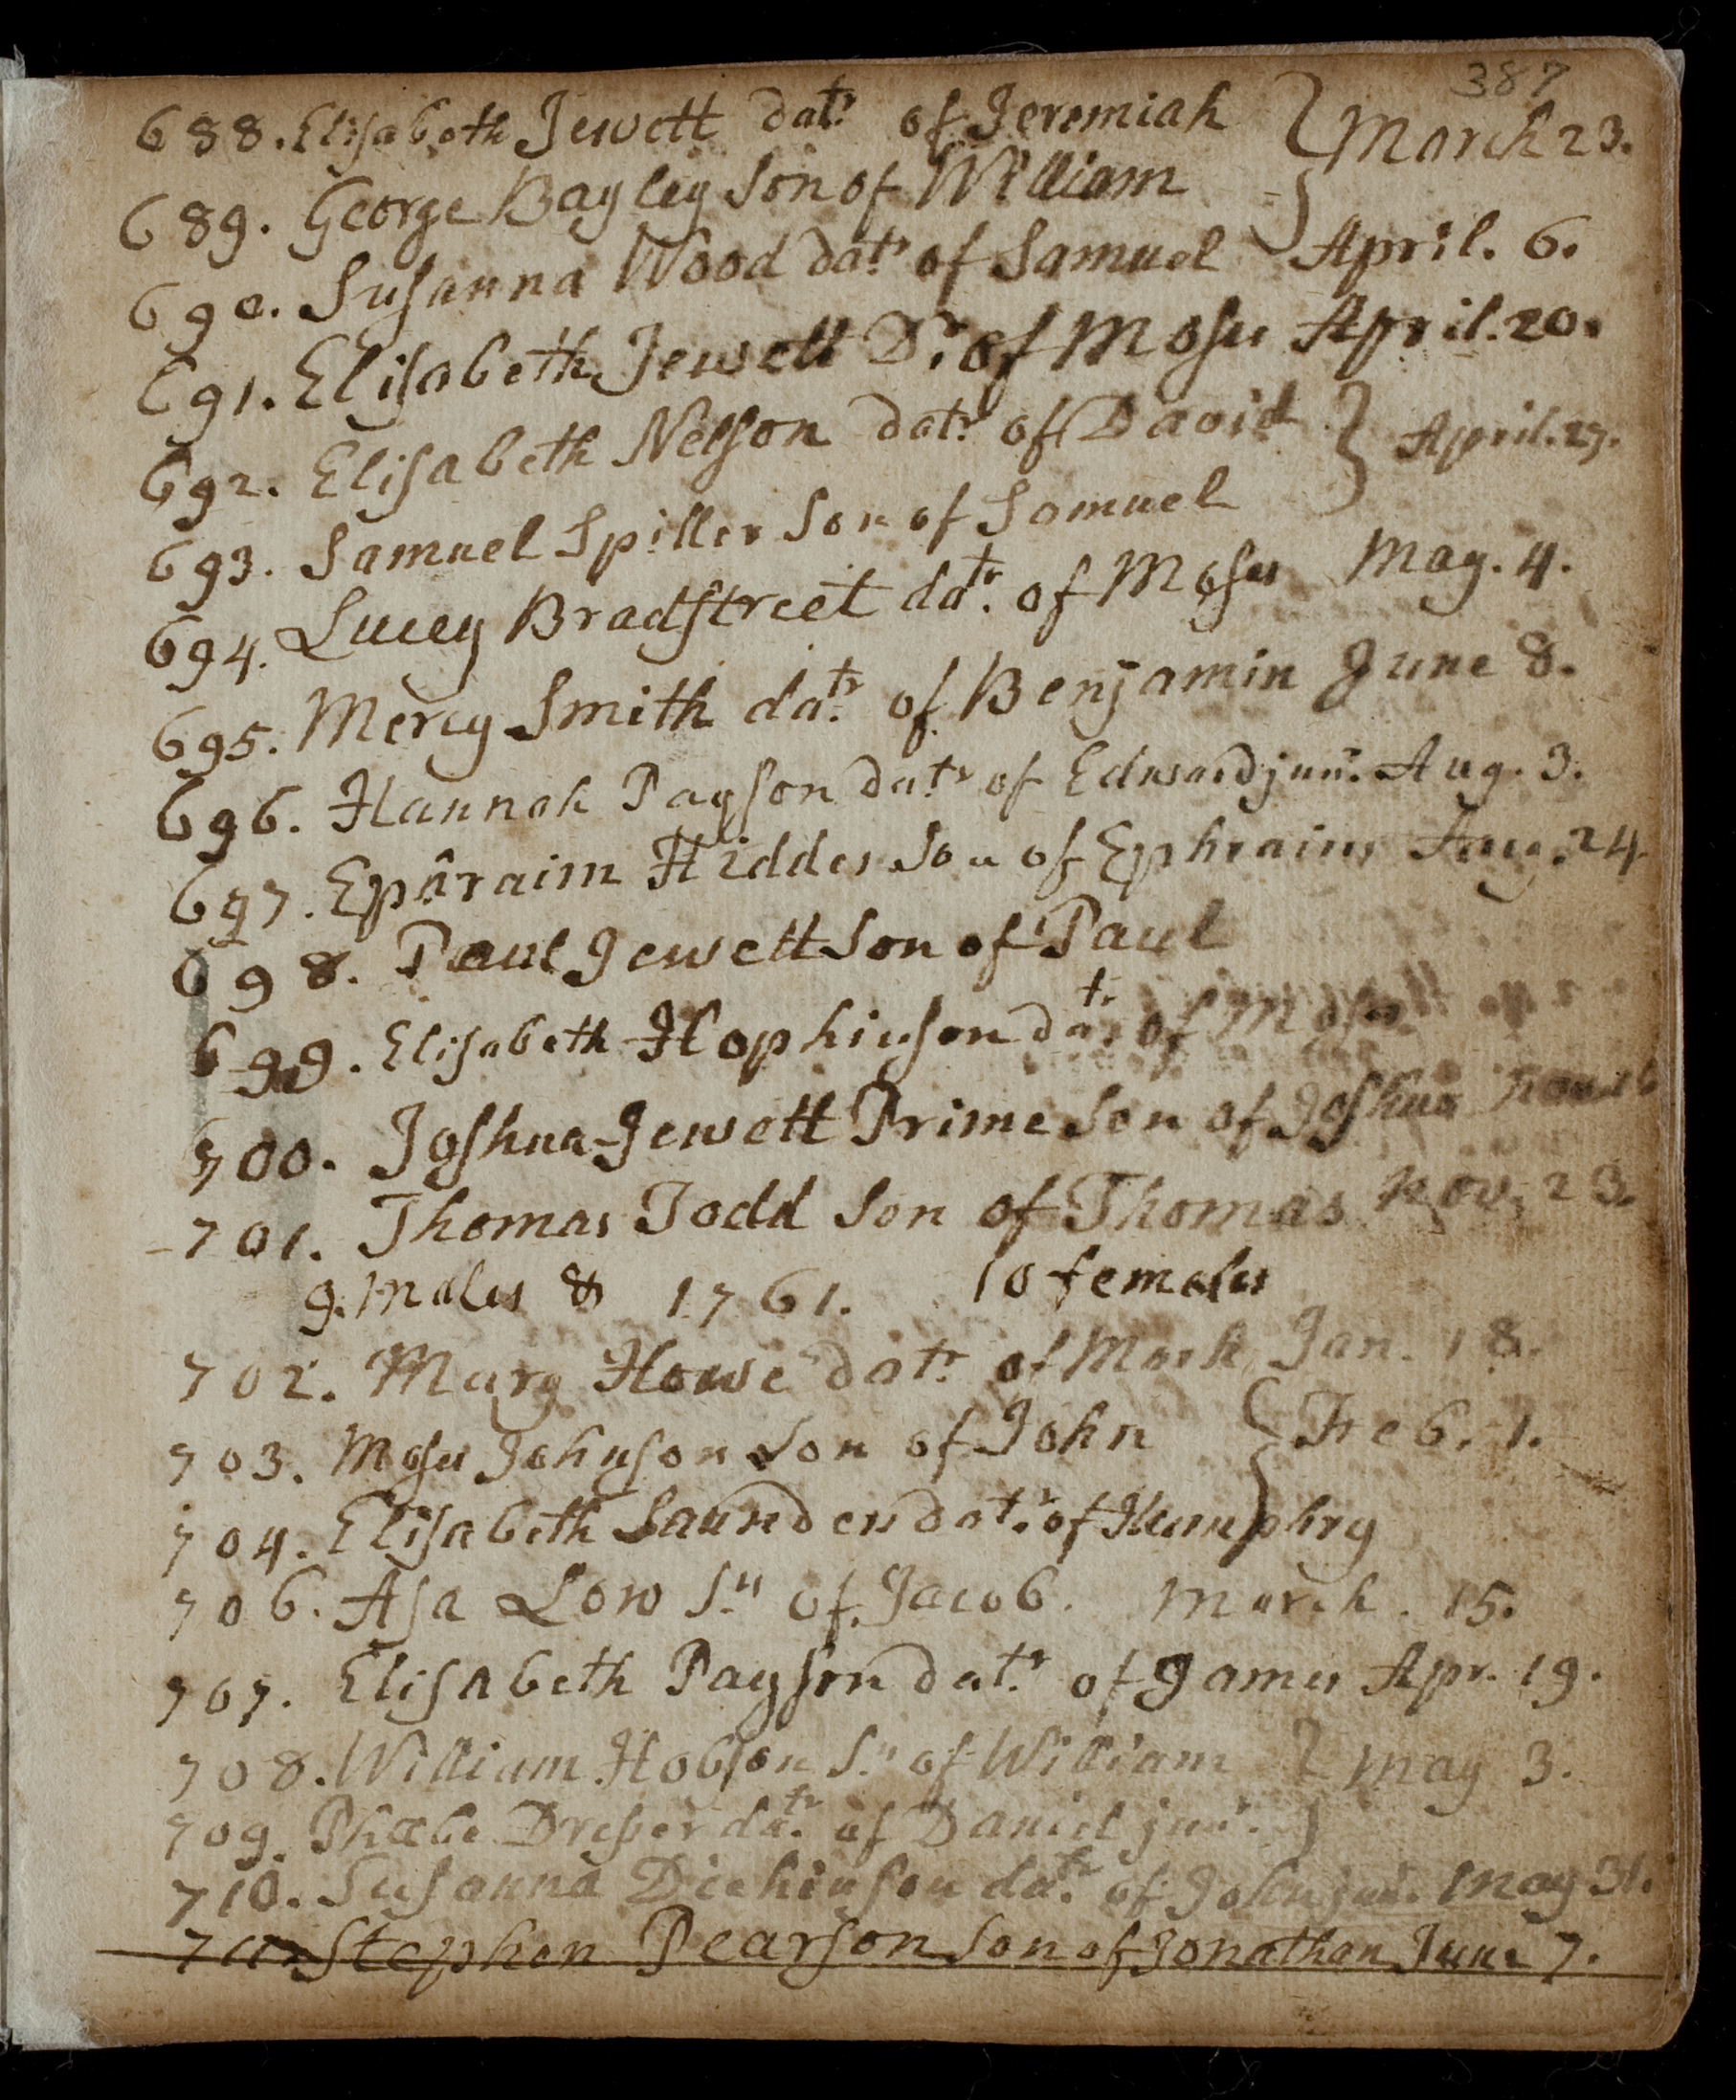 387
688. Elisabeth Jewett datr. of Jeremiah } March 23.
689. George Bayley Son of William
690. Susanna Wood datr. of Samuel } April. 6.
691. Elisabeth Jewett Dr. of Moses April. 20.
692. Elisabeth Nelson datr. of David } April. 27.
693. Samuel Spiller Son of Samuel
694. Lucey Bradstreet datr. of Moses May. 4.
695. Mercy Smith datr. of Benjamin June 8.
696. Hannah Payson datr. of Edward junr. Aug. 3.
697. Ephraim Kidder Son of Ephraim Aug. 24
698. Paul Jewett Son of Paul
699. Elisabeth Hopkinson datr. of Moses
700. Joshua Jewett Prime Son of Joshua
701. Thomas Todd Son of Thomas Nov. 23.
9. males & 1761. 10 females
702. Mary Howe datr. of Mark Jan. 18.
703. Moses Johnson Son of John } Feb. 1.
704. Elisabeth Saunders datr. of Humphry
706. Asa Low Sn. of Jacob. March. 15.
707. Elisabeth Payson datr. of James Apr. 19.
708. William Hobson Sn. of William } May 3.
709. Phœbe Dresser datr. of Daniel junr. }
710. Susanna Dickinson datr. of John junr. May 31.
Stephen Pearson Son of Jonathan June 7.